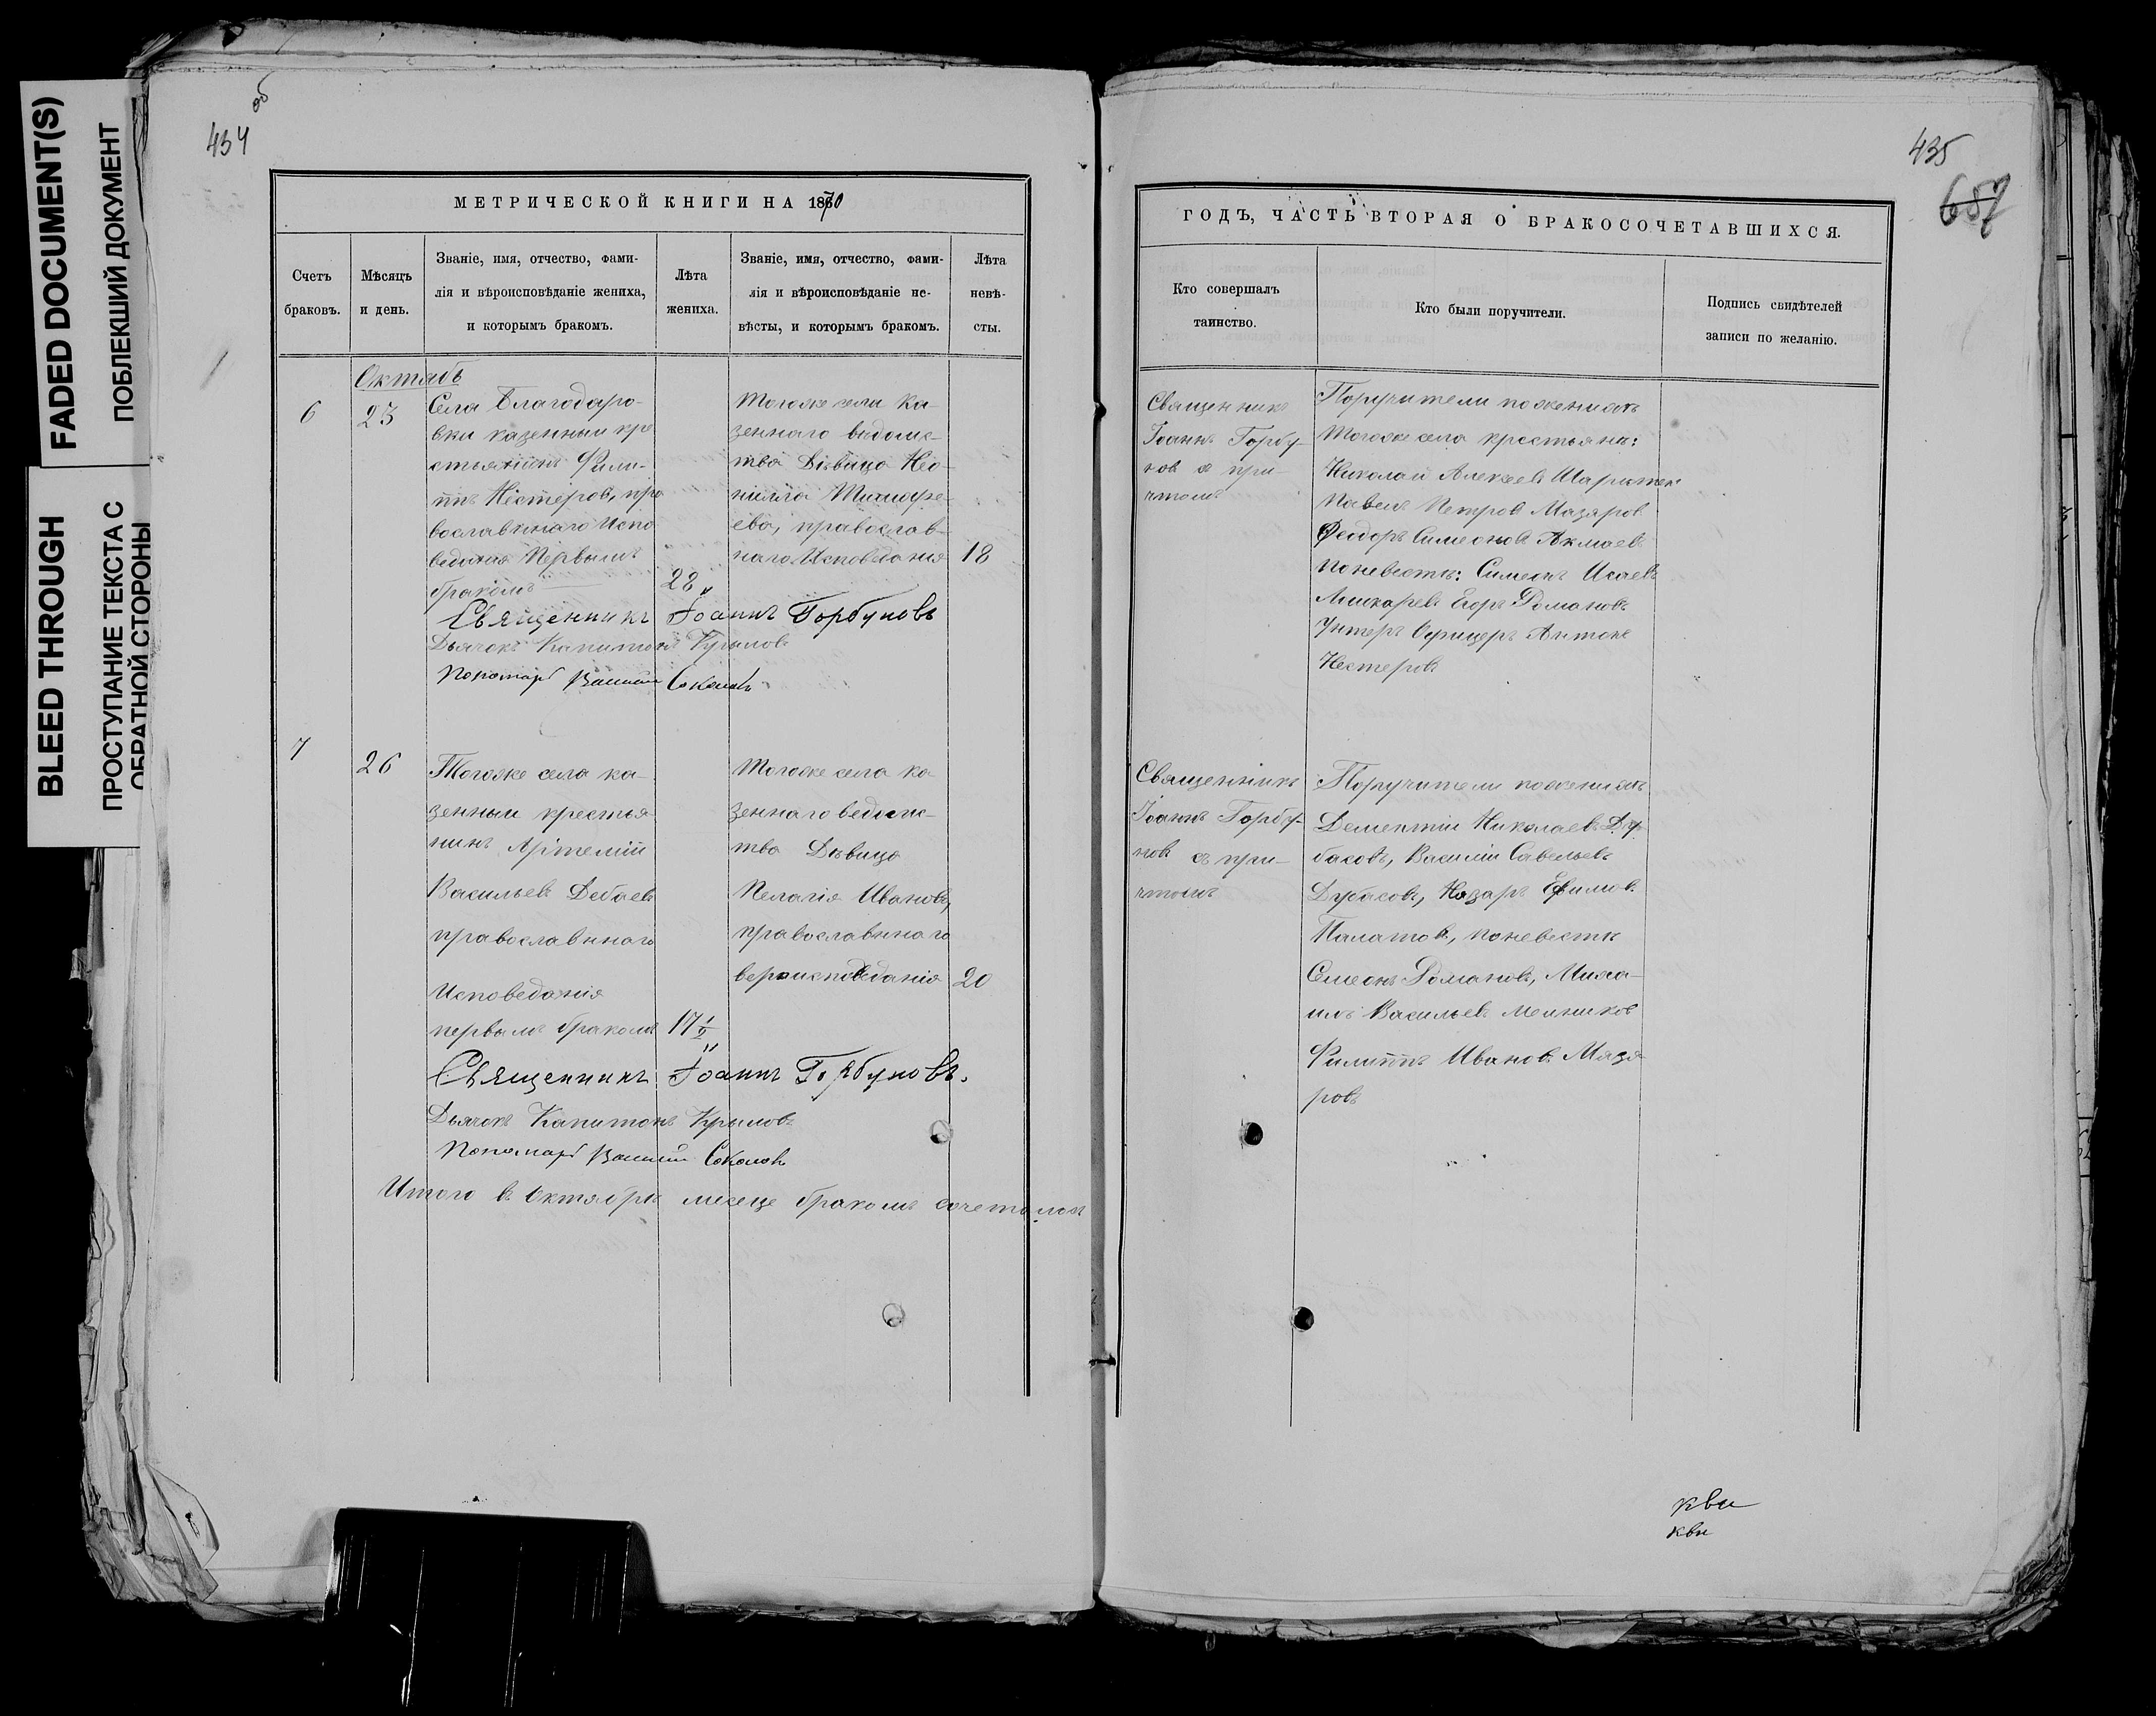 FADED DOCUMENT(S)
ПОБЛЕКШИЙ ДОКУМЕНТ
BLEED THROUGH
ПРОСТУПАНИЕ ТЕКСТА С
ОБРАТНОЙ СТОРОНЫ
434
об
МЕТРИЧЕСКОЙ КНИГИ НА 1870
Счетъ
браковъ.
Мѣсяцъ
и день.
Званіе, имя, отчество, фами-
лія и вѣроисповѣданіе жениха,
и которымъ бракомъ.
Лѣта
жениха.
Званіе, имя, отчество, фами-
лія и вѣроисповѣданіе не-
вѣсты, и которымъ бракомъ.
Лѣта
невѣ-
сты.
Октябь
6
23
Села Благодаро-
вки казенный кре
стьянинъ Фили-
ппъ Нестеровъ, пра
вославнаго испо
веданія Первымъ
бракомъ
28
Тогоже села Ка-
зеннаго ведомс-
тва Дѣвица Нео-
нилла Тимофе-
ева, православ-
наго Исповеданія
18
Священникъ Іоаннъ Горбуновъ
Дьячокъ Капитонъ Крыловъ
Пономарь Василій Соколовъ
7
26
Тогоже села ка-
зенный крестья
нинъ Артемій
Васильевъ Дебаевъ
православннаго
Исповеданія
первымъ бракомъ
17 1/2
Тогоже села ка
зеннаго ведомс-
тва Дѣвица
Пелагія Иванова,
православннаго
вероисповеданія
20
Священникъ Іоаннъ Горбуновъ.
Дьячокъ Капитонъ Крыловъ
Пономарь Василій Соколовъ
Итого в Октябрѣ месеце бракомъ сочеталось
435
687
ГОДЪ, ЧАСТЬ ВТОРАЯ О БРАКОСОЧЕТАВШИХСЯ.
Кто совершалъ
таинство.
Кто были поручители.
Подпись свидѣтелей
записи по желанію.
Священникъ
Іоаннъ Горбу-
новъ с при-
чтомъ
Поручители поженихѣ
Тогоже села крестьяни:
Николай Алексеевъ
Павелъ Петровъ Мазяровъ
Феодоръ Симеоновъ Акмаевъ
поневестѣ: Симеонъ Исаевъ
Егоръ Романовъ
Унтеръ Офицеръ Антонъ
Нестеровъ
Священникъ
Іоаннъ Горбу-
новъ съ при-
чтомъ
Поручители поженихѣ
Дементій Николаевъ Ду
басовъ, Василій Савельевъ
Дубасовъ, Назаръ Ефимовъ
Палатовъ, поневестѣ
Семеонъ Романовъ, Миха-
илъ Васильевъ Мелников
Филиппъ Ивановъ Мазя
ровъ